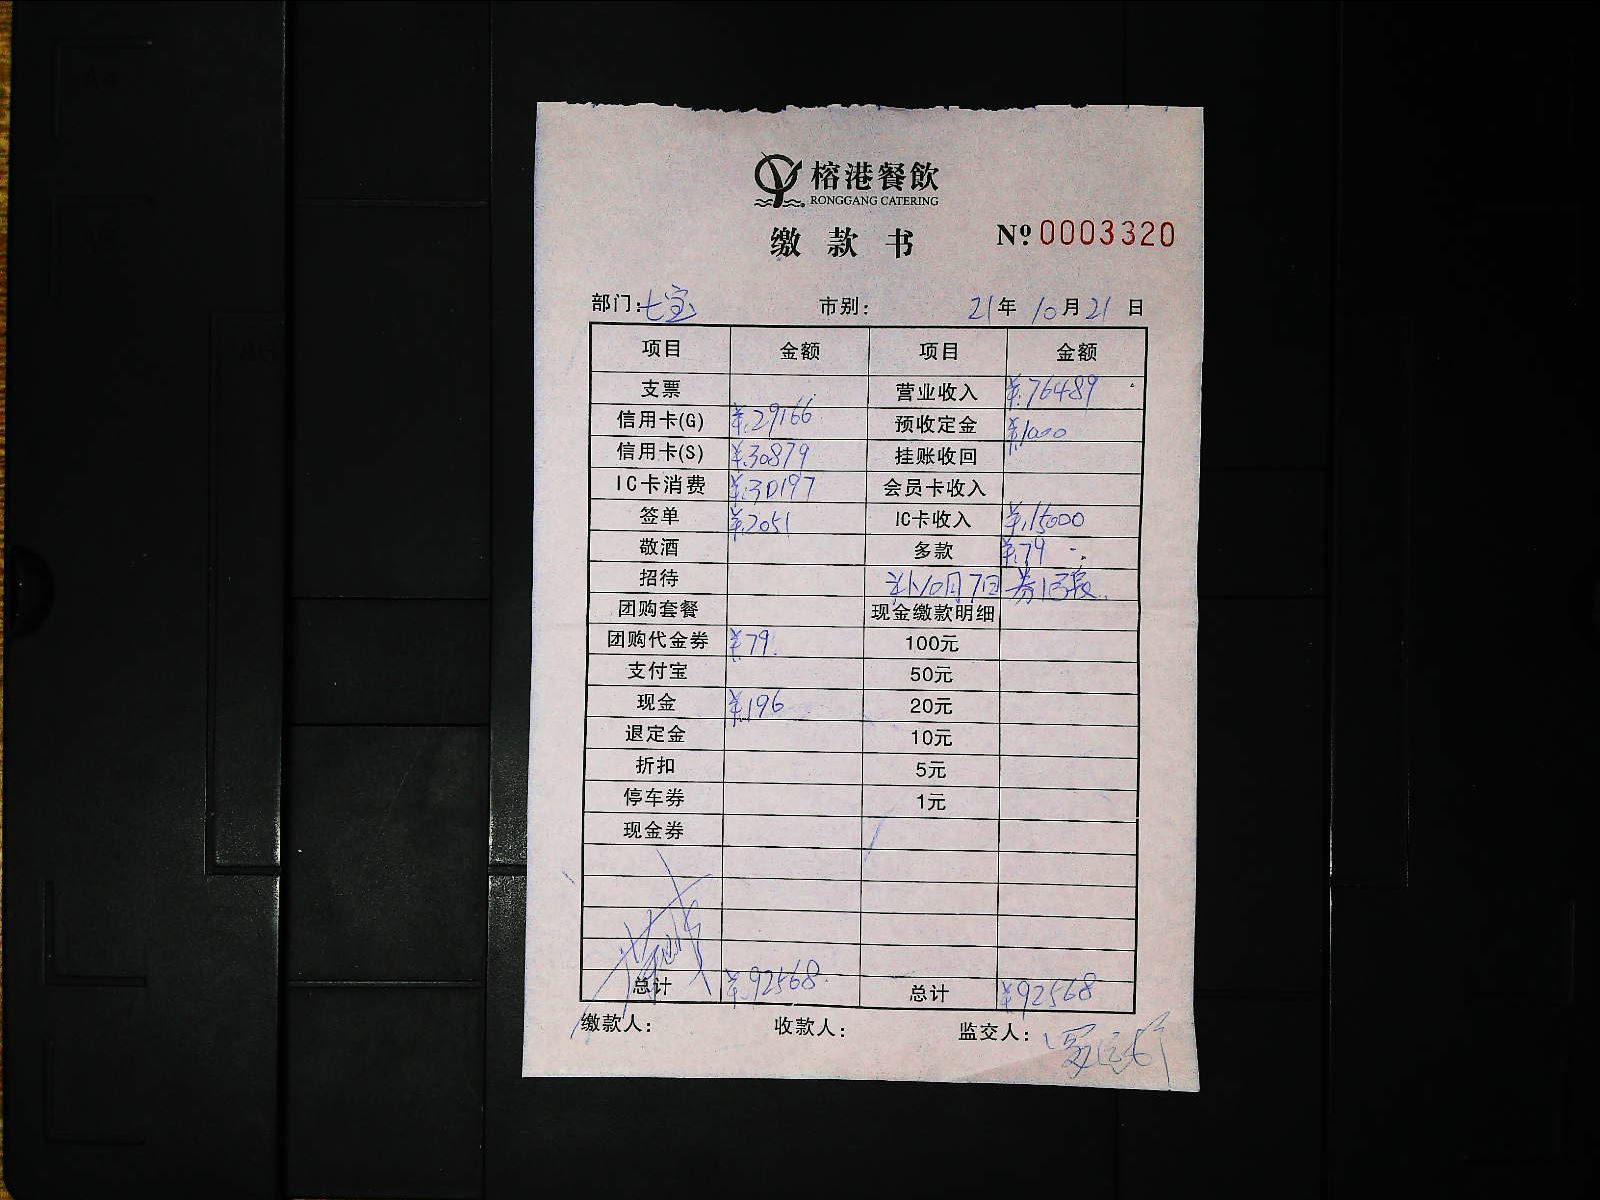 榕港餐飲
RONGGANG CATERING
缴款书 Nº 0003320
部门: 七宝 市别: 21年 10月 21日
项目 金额 项目 金额
支票 营业收入 ¥.76489
信用卡(G) ¥.29166 预收定金 ¥.1000
信用卡(S) ¥.30879 挂账收回
IC卡消费 ¥.30197 会员卡收入
签单 ¥.2051 IC卡收入 ¥.15000
敬酒 多款 ¥.79
招待 补10月7日 券
团购套餐 现金缴款明细
团购代金券 ¥79. 100元
支付宝 50元
现金 ¥196 20元
退定金 10元
折扣 5元
停车券 1元
现金券
总计 ¥.92568 总计 ¥92568
缴款人: 收款人: 监交人: